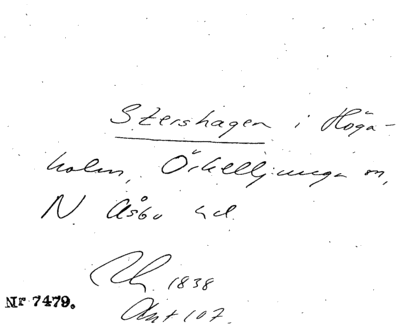 Stershagen i Höga-
holm, Örkelljunga sn,
N. Åsbo hd.
Rh. 1838
Akt 107.
Nr 7479.